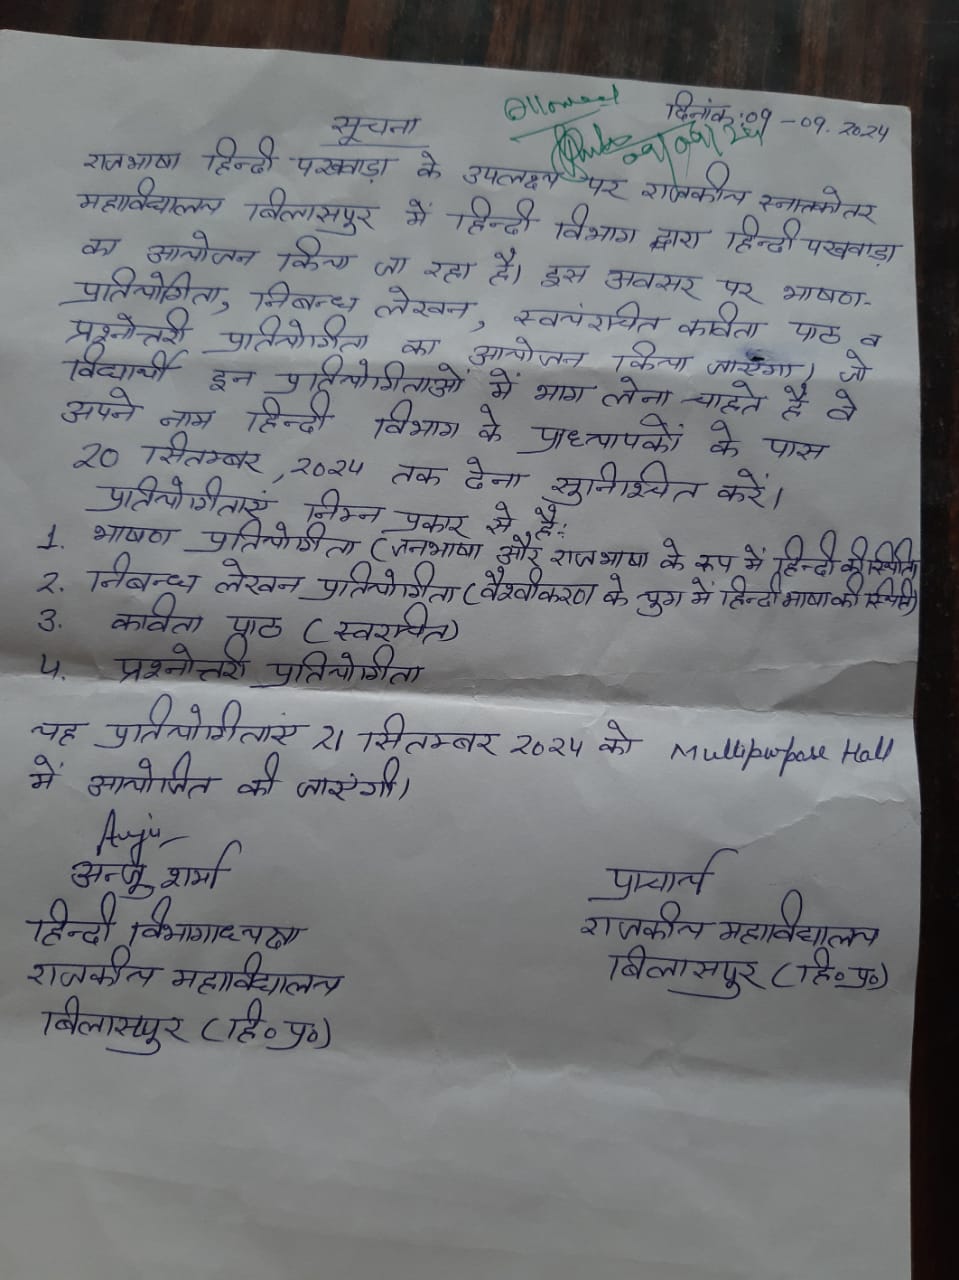 Allowed
दिनांक: 09-09.2024
09/09/24
सूचना
राजभाषा हिन्दी पखवाड़ा के उपलक्ष्य पर राजकीय स्नातकोतर
महाविद्यालय बिलासपुर में हिन्दी विभाग द्वारा हिन्दी पखवाड़ा
का आयोजन किया जा रहा है। इस अवसर पर भाषण-
प्रतियोगिता, निबन्ध लेखन, स्वयंरचित कविता पाठ व
प्रश्नोत्तरी प्रतियोगिता का आयोजन किया जाएगा। जो
विद्यार्थी इन प्रतियोगिताओं में भाग लेना चाहते है वे
अपने नाम हिन्दी विभाग के प्राध्यापकों के पास
20 सितम्बर, 2024 तक देना सुनिश्चित करें।
प्रतियोगिताएं निम्न प्रकार से है:
1. भाषण प्रतियोगिता (जनभाषा और राजभाषा के रूप में हिन्दी की स्थिति)
2. निबन्ध लेखन प्रतियोगिता (वैश्वीकरण के युग में हिन्दी भाषा की स्थिति)
3. कविता पाठ (स्वरचित)
4. प्रश्नोत्तरी प्रतियोगिता
यह प्रतियोगिताएं 21 सितम्बर 2024 को Multipurpose Hall
में आयोजित की जाएंगी।
Anju
अन्जु शर्मा
हिन्दी विभागाध्यक्षा
राजकीय महाविद्यालय
बिलासपुर (हि॰प्र॰)
प्राचार्य
राजकीय महाविद्यालय
बिलासपुर (हि॰प्र॰)